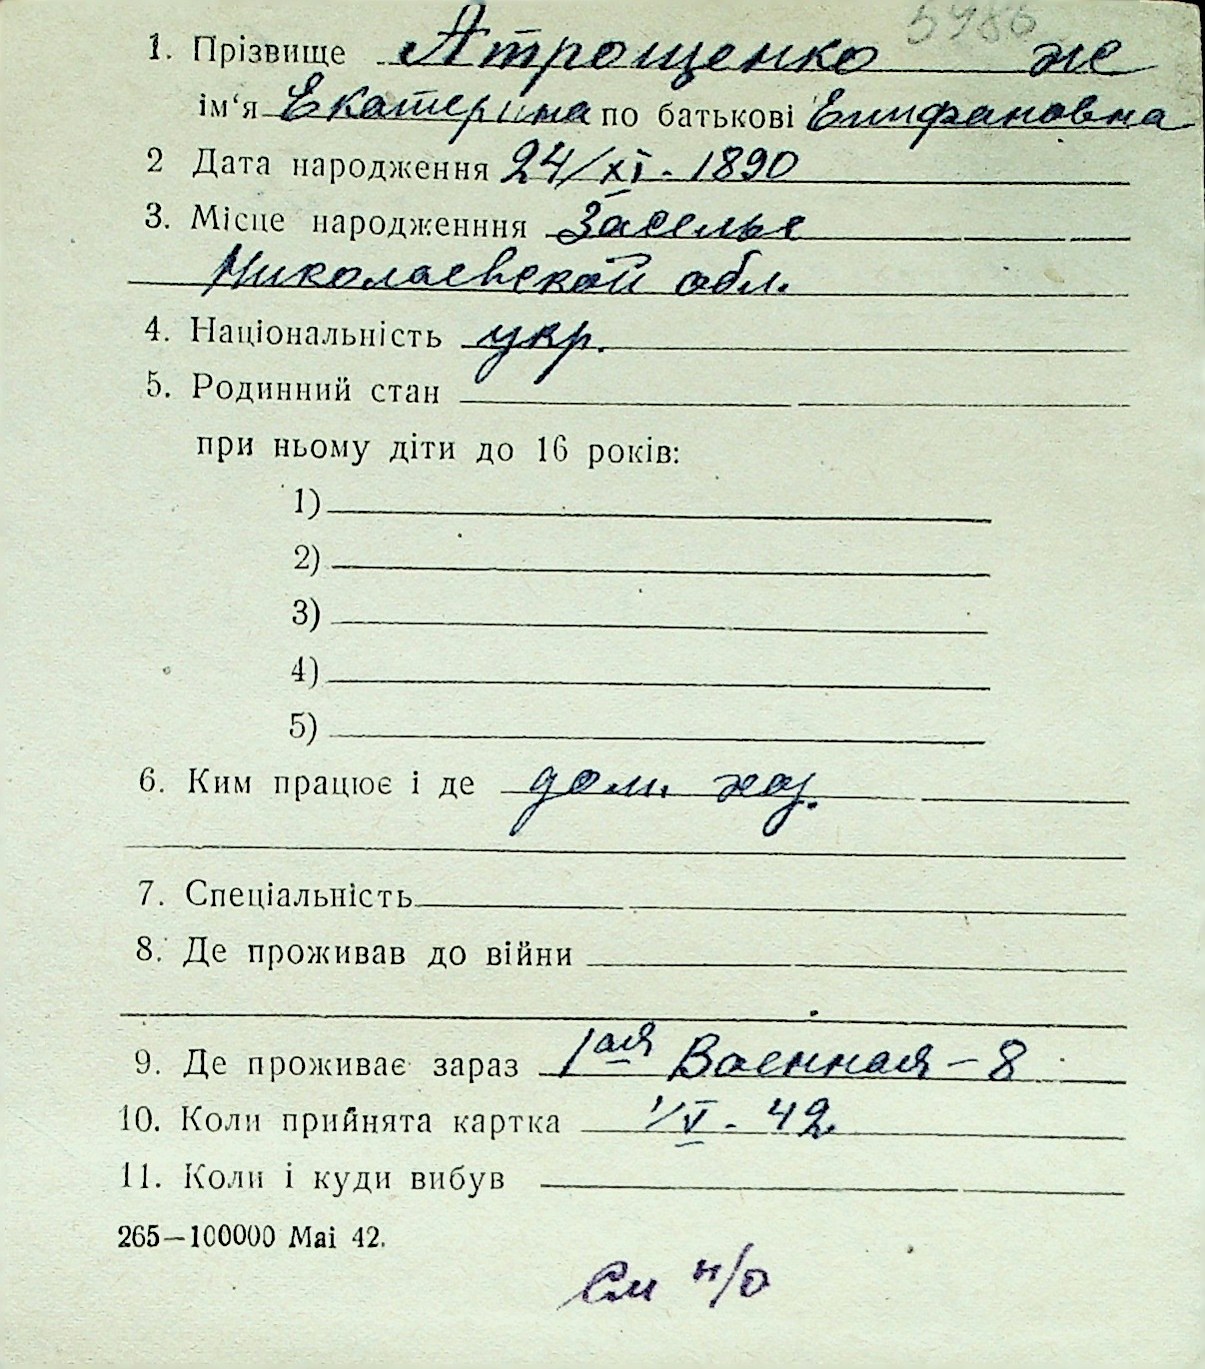 5486
1. Прізвище Атрощенко же
ім‘я Екатерина по батькові Епифановна
2 Дата народження 24/XI - 1890
3. Місце народженння Заселье
Николаевской обл.
4. Національність укр.
5. Родинний стан
при ньому діти до 16 років:
1)
2)
3)
4)
5)
6. Ким працює і де дом. хоз.
7. Спеціальність
8. Де проживав до війни
9. Де проживає зараз 1ая Военная - 8
10. Коли прийнята картка 1/V - 42
11. Коли і куди вибув
265—100000 Mai 42.
См н/о